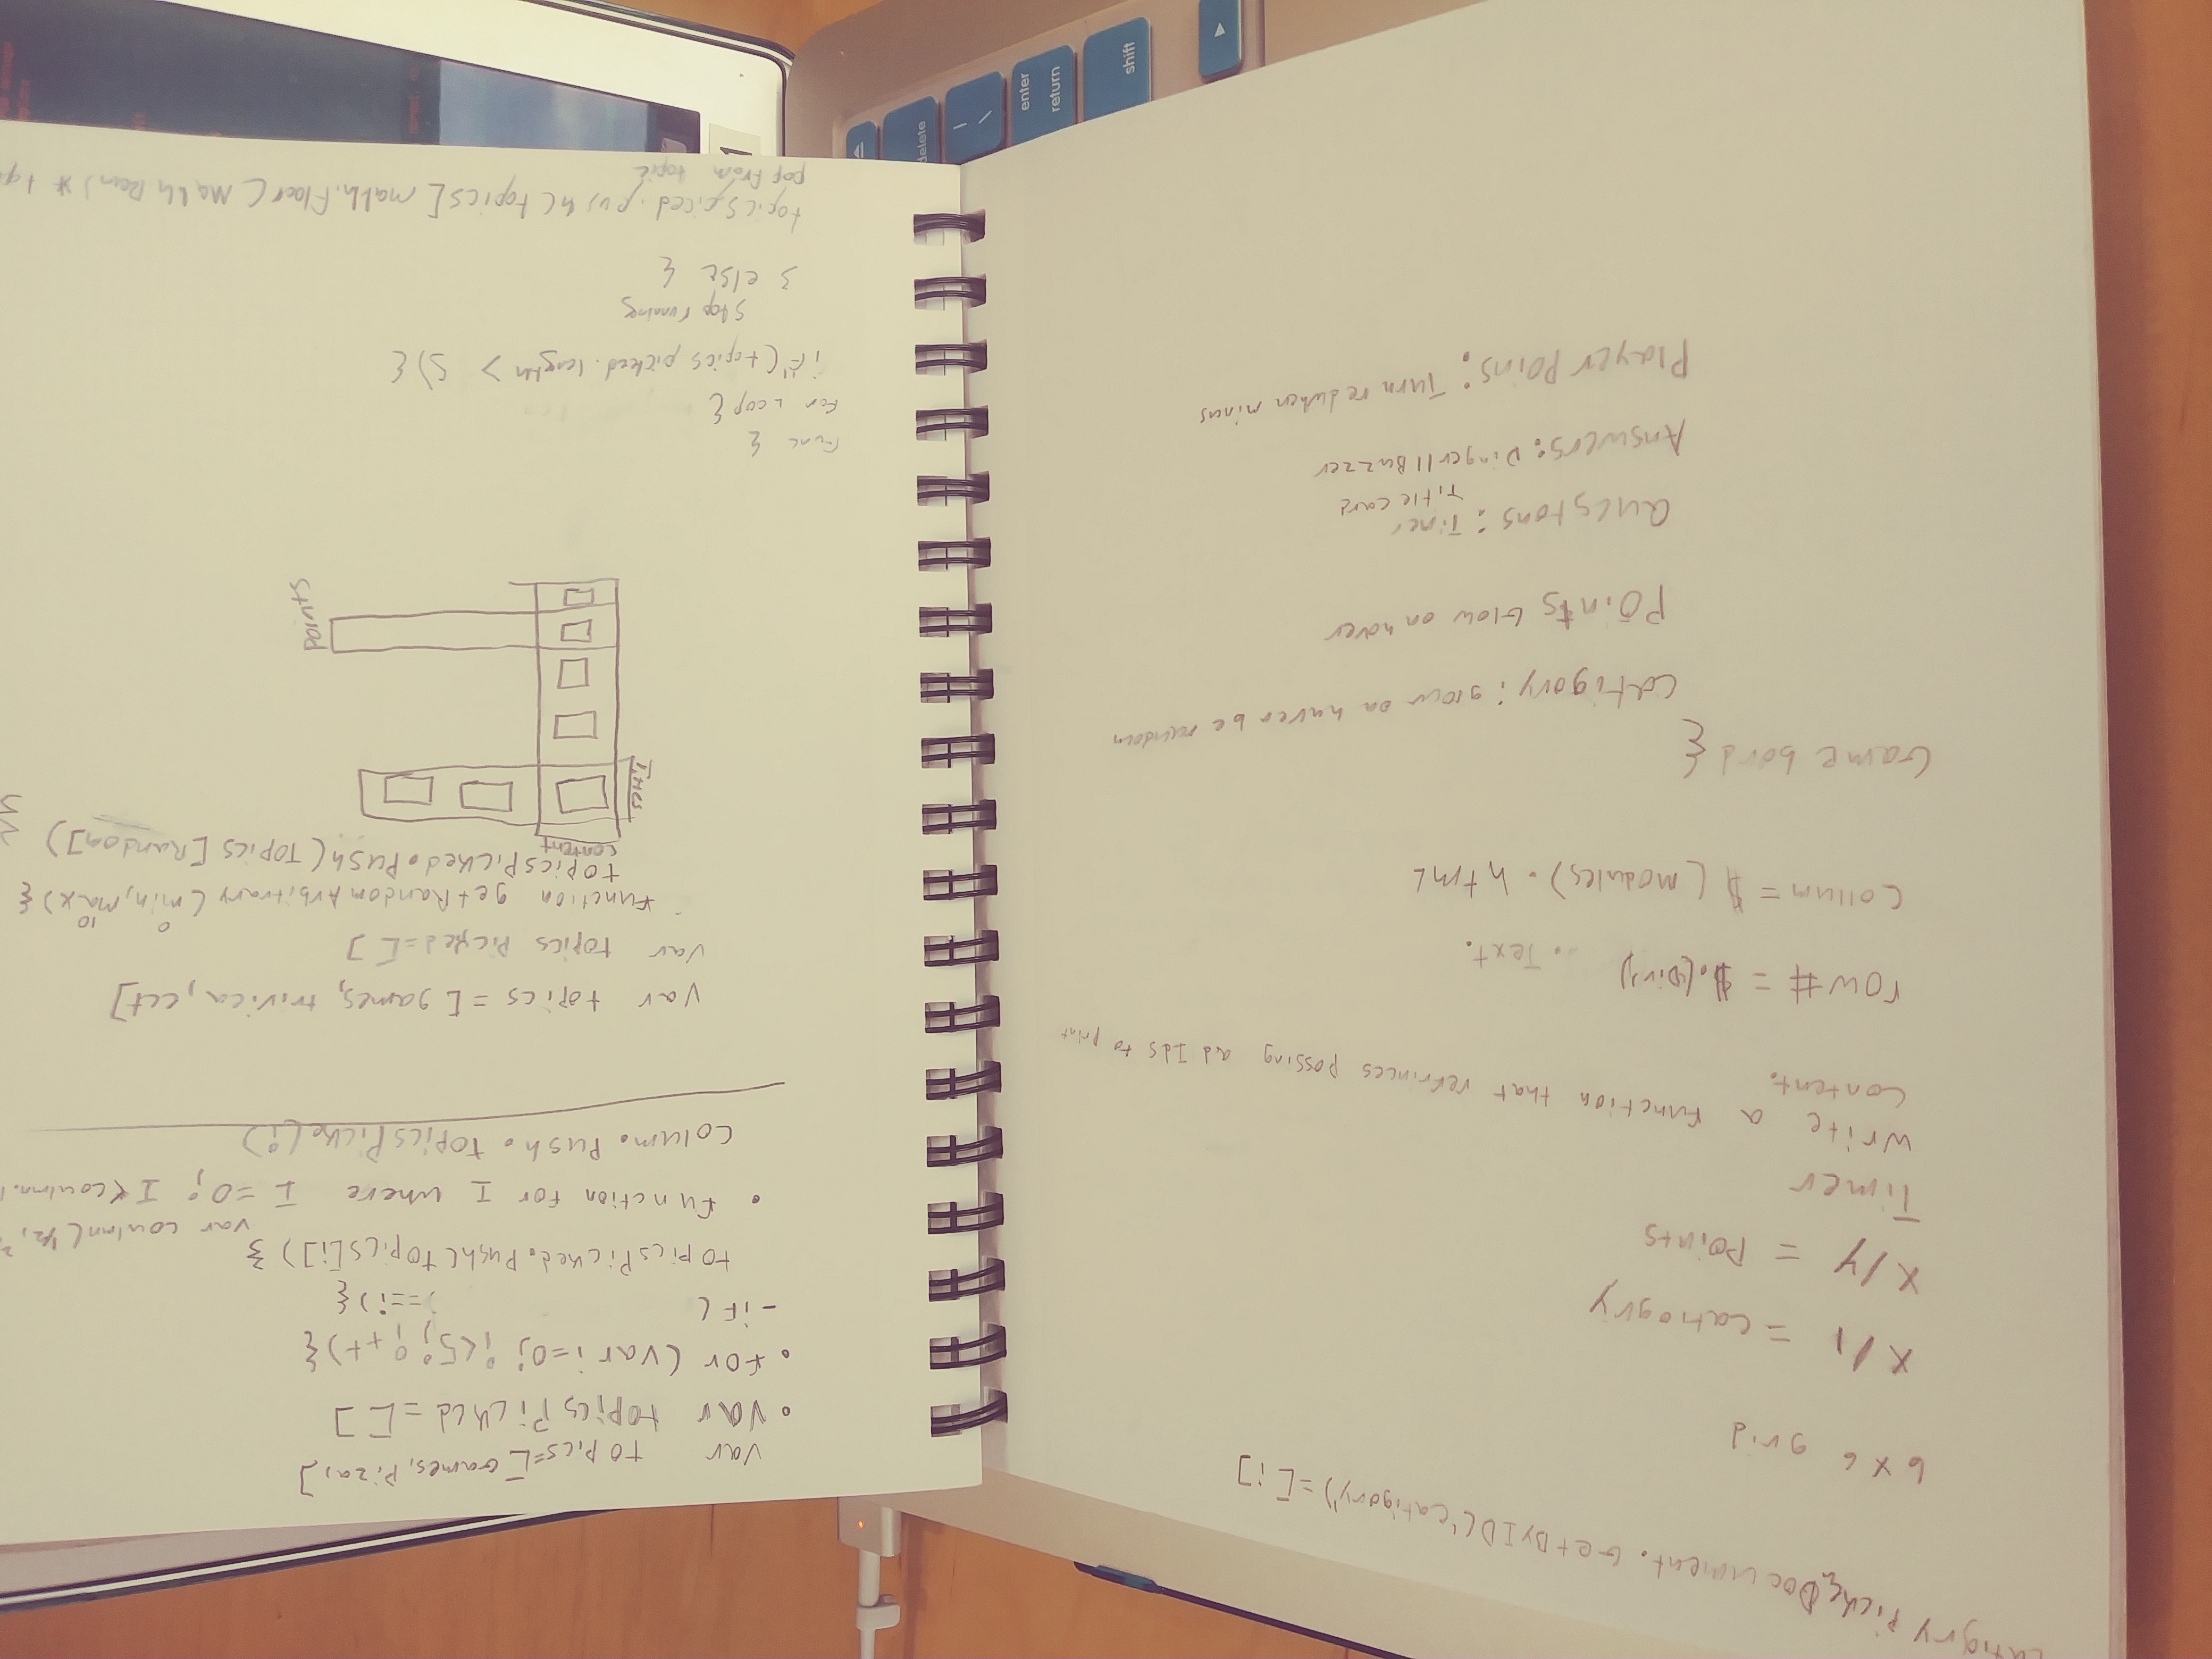 Catigry Picke{Document.GetByID('catigory')=[i]
6 x 6 grid
X/1 = catiogry
X/y = Points
Timer
write a function that refrinces passing ad Ids to print
content.
row# = $.(Div)) .Text.
Collum=$ (modules).html
Game bord {
catigory: grow on haver be random
Points Glow on hover
Questons: Timer
Title card
Answers: Dinger||Buzzer
Player Poins: Turn red when minus
var topics=[Games,Piza,]
• Var topicsPicked=[]
• for (var i=0; i<5; i++){
- if( )==i){
topicsPicked.Push(topics[i]) }
var coulmn(1/2,
• function for I where I=0; I<coulmn.
Colum.Push.topicsPicke(i)
Var topics=[games, trivica, ect]
var topics Picked=[]
function getRandomArbitrary(min, max){
0 10
topicsPicked.Push(Topics[Random])
content
Func {
For Loop {
if (topics picked.length > 5){
stop running
} else {
topicspiced.push(topics[math.floor(Math.Ran)*
pop from topic
delete
enter
return
shift